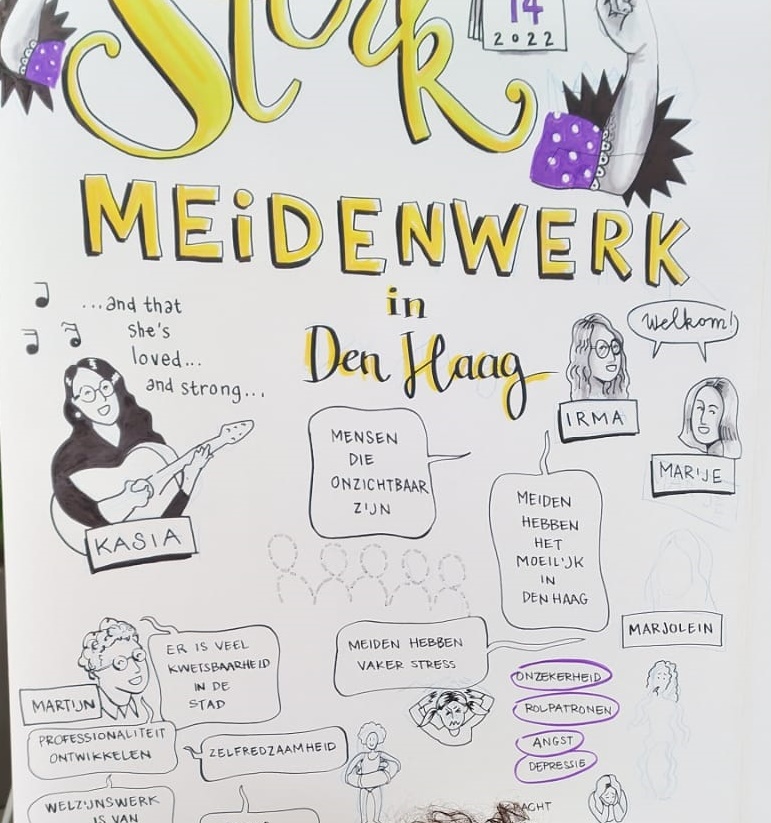 Sterk
14
2022
MEiDENWERK
in
Den Haag
...and that
she's
loved...
and strong...
KASIA
Welkom!
IRMA
MARIJE
MENSEN
DIE
ONZICHTBAAR
ZIJN
MEIDEN
HEBBEN
HET
MOEILIJK
IN
DEN HAAG
MARJOLEIN
MARTIJN
ER IS VEEL
KWETSBAARHEID
IN DE
STAD
MEIDEN HEBBEN
VAKER STRESS
ONZEKERHEID
ROLPATRONEN
ANGST
DEPRESSIE
PROFESSIONALITEIT
ONTWIKKELEN
ZELFREDZAAMHEID
WELZIJNSWERK
IS VAN